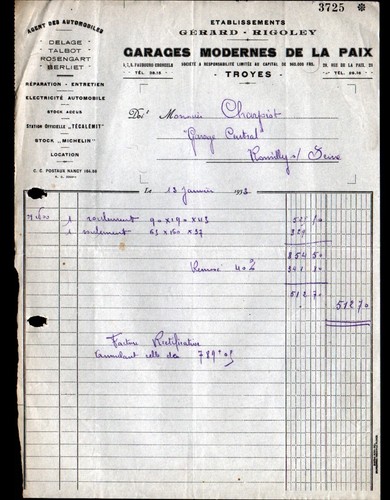 3725
AGENT DES AUTOMOBILES
DELAGE
TALBOT
ROSENGART
BERLIET
RÉPARATION - ENTRETIEN
ELECTRICITÉ AUTOMOBILE
STOCK ACCUS
STATION OFFICIELLE „TÉCALÉMIT”
STOCK „MICHELIN”
LOCATION
C. C. POSTAUX NANCY
ETABLISSEMENTS
GERARD - RIGOLEY
GARAGES MODERNES DE LA PAIX
FAUBOURG CRONCELS
SOCIÉTÉ A RESPONSABILITÉ LIMITÉE AU CAPITAL DE FRS.
RUE DE LA PAIX
TÉL. 28.15
TROYES
TÉL. 28.15
Doit Monsieur Charpiot
"Garage Central"
Romilly s/ Seine
Le 13 Janvier 193
1 roulement 90 x 190 x 43
1 roulement 63 x 160 x 37
854 50
Remise 40%
512 70
512 70
Facture Rectificative
annulant celle de 789